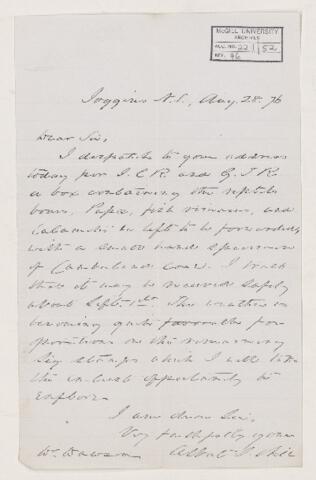 McGILL UNIVERSITY
ARCHIVES
ACC. NO. 22 / 52
REF. 46
Joggins N.S., Aug. 28. 76
Dear Sir,
I despatch to your address
today per I.C.R. and G.T.R.
a box containing the reptile
bones, Pupa, fish remains, and
Calamites left to be forwarded,
with a small hand specimen
of Cumberland coal. I trust
that it may be received safely
about Sept. 1st. The weather is
becoming quite favorable for
operations on the remaining
Sig. stumps which I will take
the earliest opportunity to
explore.
I am dear Sir,
Very faithfully yours
Dr. Dawson Albert J. Hill